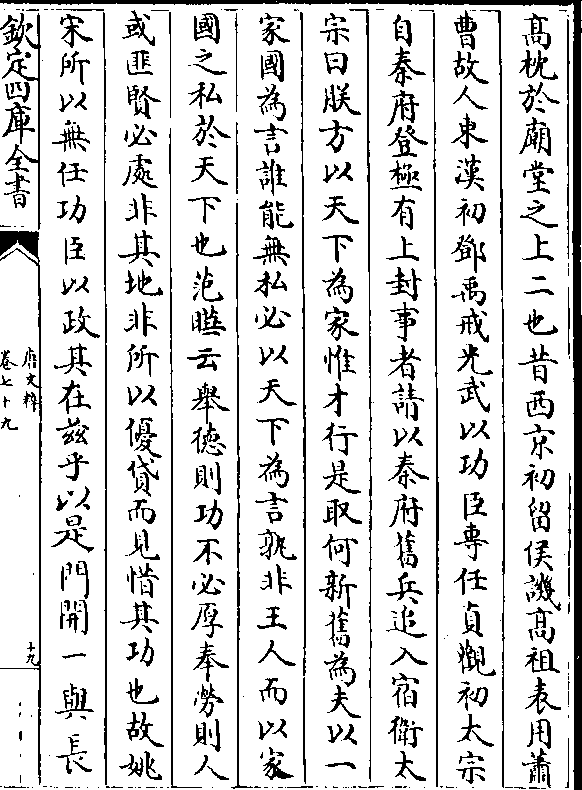 髙枕於廟堂之上二也昔西京初留侯譏髙祖表用蕭
曹故人東漢初鄧禹戒光武以功臣專任貞觀初太宗
自秦府登極有上封事者請以秦府舊兵追入宿衛太
宗曰朕方以天下為家惟才行是取何新舊為夫以一
家國為言誰能無私必以天下為言孰非王人而以家
國之私於天下也范曄云舉德則功不必厚奉勞則人
或匪賢必處非其地非所以優貸而見惜其功也故姚
宋所以無任功臣以政其在兹乎以是門開一與長
欽定四庫全書
唐文粹
卷七十九
十九